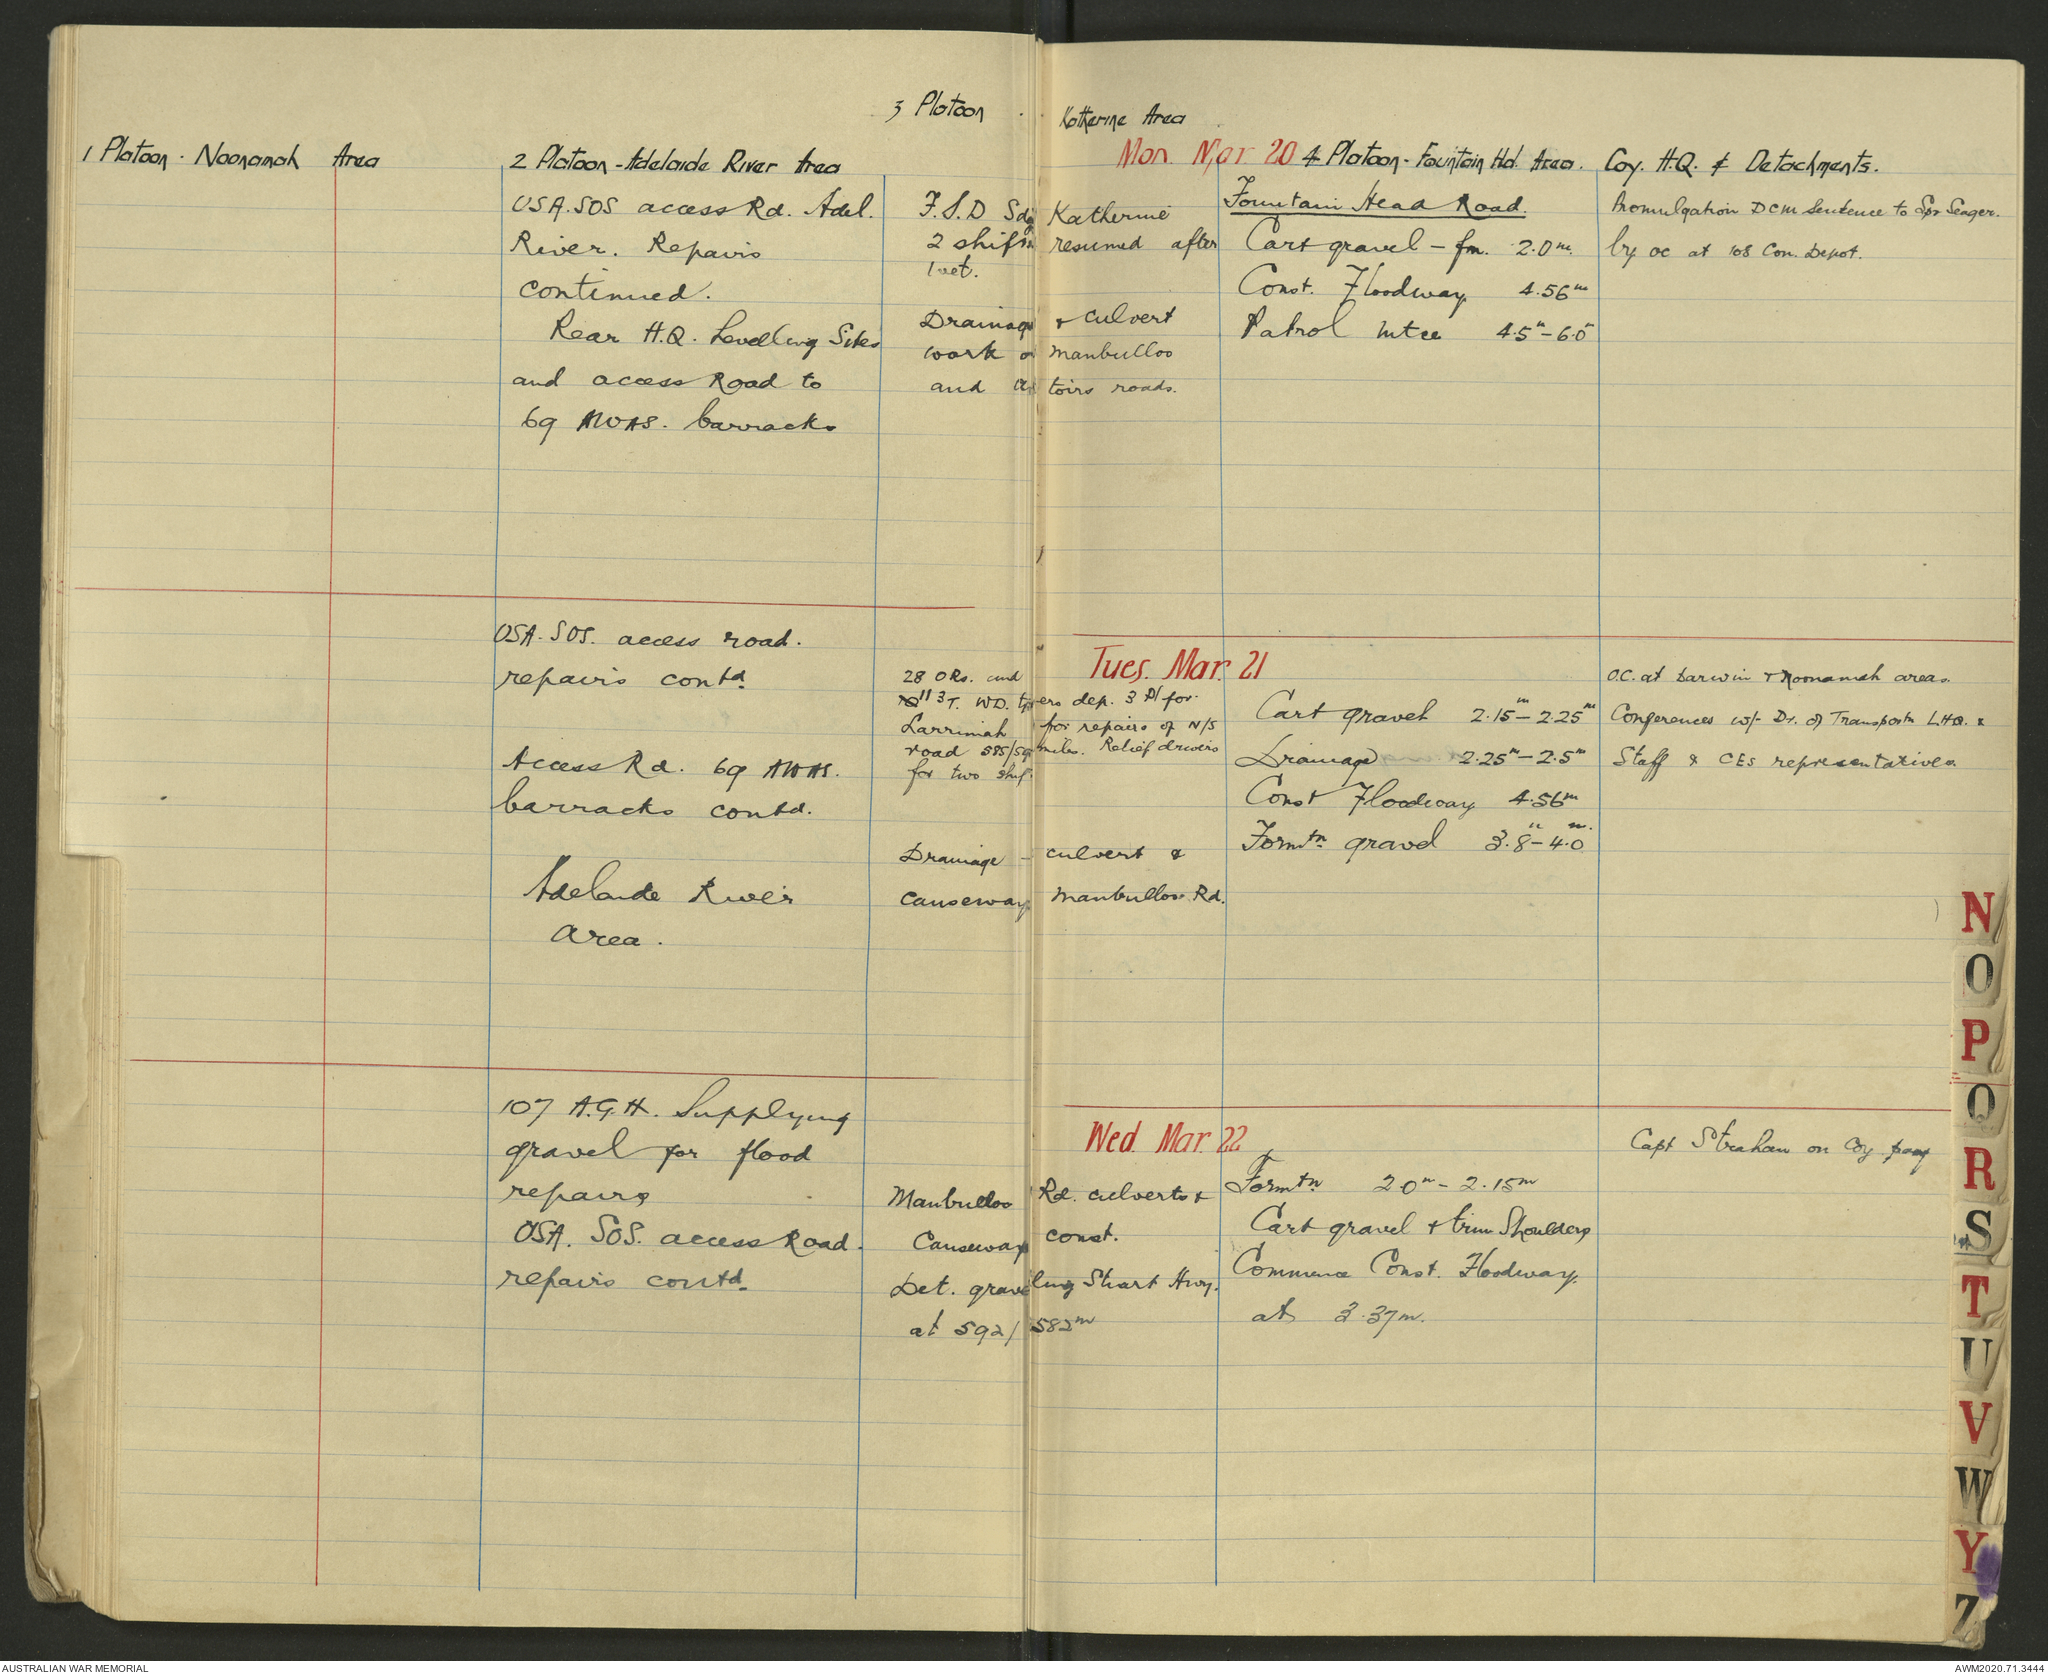 3 Platoon . Katherine Area
1 Platoon . Noonamah Area
2 Platoon - Adelaide River Area
Mon. Mar 20
4 Platoon - Fountain Hd. Area.
Coy. H.Q. & Detachments.
USA. SOS access Rd. Adel.
River. Repairs
continued.
Rear H.Q. Levelling Sites
and access Road to
69 AWAS. barracks
F.S.D Sdg Katherine
2 shifts resumed after
1 wet.
Drainage & culvert
work on Manbulloo
and toirs roads.
Fountain Head Road.
Cart gravel - fm. 2.0m.
Const. Floodway 4.56m
Patrol mtce 4.5m - 6.0
Promulgation DCM Sentence to Spr Seager.
by OC at 108 Con. Depot.
USA. SOS. access road.
repairs contd.
Access Rd. 69 AWAS.
barracks contd.
Adelaide River
Area.
Tues. Mar. 21
28 ORs. and
11 3T. WD. tippers dep. 3 Pl for
Larrimah for repairs of N/S
road 585/59 miles. Relief drivers
for two shifts.
Drainage - culvert &
causeway Manbulloo Rd.
Cart gravel 2.15m - 2.25m
Drainage 2.25m - 2.5m
Const Floodway 4.56m
Formtn gravel 3.8m - 4.0m.
O.C. at Darwin & Noonamah areas.
Conferences w/- Dr. of Transportn LHQ. &
Staff & CEs representatives.
107 A.G.H. Supplying
gravel for flood
repairs
USA. SOS. access Road.
repairs contd.
Wed. Mar. 22
Manbulloo Rd. culverts &
Causeway const.
Det. graveling Stuart Hwy.
at 592/582m
Formtn 2.0m - 2.15m
Cart gravel & trim Shoulders
Commence Const. Floodway.
at 3.37m.
Capt Strahan on Coy pay
N
O
P
Q
R
S
T
U
V
W
Y
Z
AUSTRALIAN WAR MEMORIAL
AWM2020.71.3444